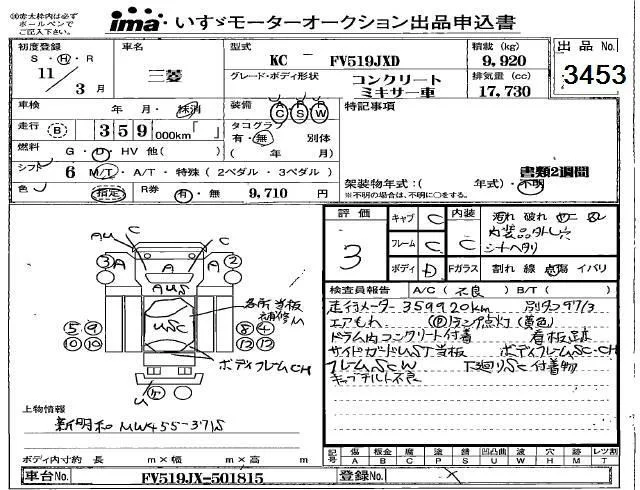 ※赤太枠内は必ず
ボールペンで
ご記入下さい。
ima・いすゞモーターオークション出品申込書
初度登録 S・H・R 11 / 3月
車名 三菱
型式 KC － FV519JXD
グレード・ボディ形状 コンクリート
ミキサー車
積載 (kg) 9,920
排気量 (cc) 17,730
出品No. 3453
車検 年 月・抹消
装備 A C P S R W
特記事項
走行 B 359 000km「 」
タコグラフ 有・無 別体
( 年 月)
燃料 G・D・HV 他( )
シフト 6 M/T・A/T・特殊 (2ペダル・3ペダル)
書類2週間
架装物年式:( 年式)・不明
※不明の場合は、不明に○をする。
色 指定 R券 有・無 9,710 円
評価 3
キャブ C
フレーム C
ボディ D
内装 C
汚れ 破れ
内装品外し穴
シートヘタリ
Fガラス 割れ 線 点傷 イバリ
検査員報告 A/C(不良 ) B/T( )
走行メーター359920km 別タコ97/3
エアもれ Pランプ点灯(黄色)
ドラム内コンクリート付着
サイドガードUST当板 ボディフレームSC・CH
フレームSCW 下廻りSC付着物
キャブチルト不良
AU C C
3 A A A 2
AUS
各所当板
補修M
USC
5 9 8 4
10 10 12 12
ボディフレームCH
U
上物情報
新明和 MW455-371S
ボディ内寸約 長 m×幅 m×高 m
記号 傷 A 板金 B 腐 C 塗 P 錆 S 凹凸曲 U 波 W 穴 H 跡 M レツ割 T
車台No. FV519JX-501815
登録No.